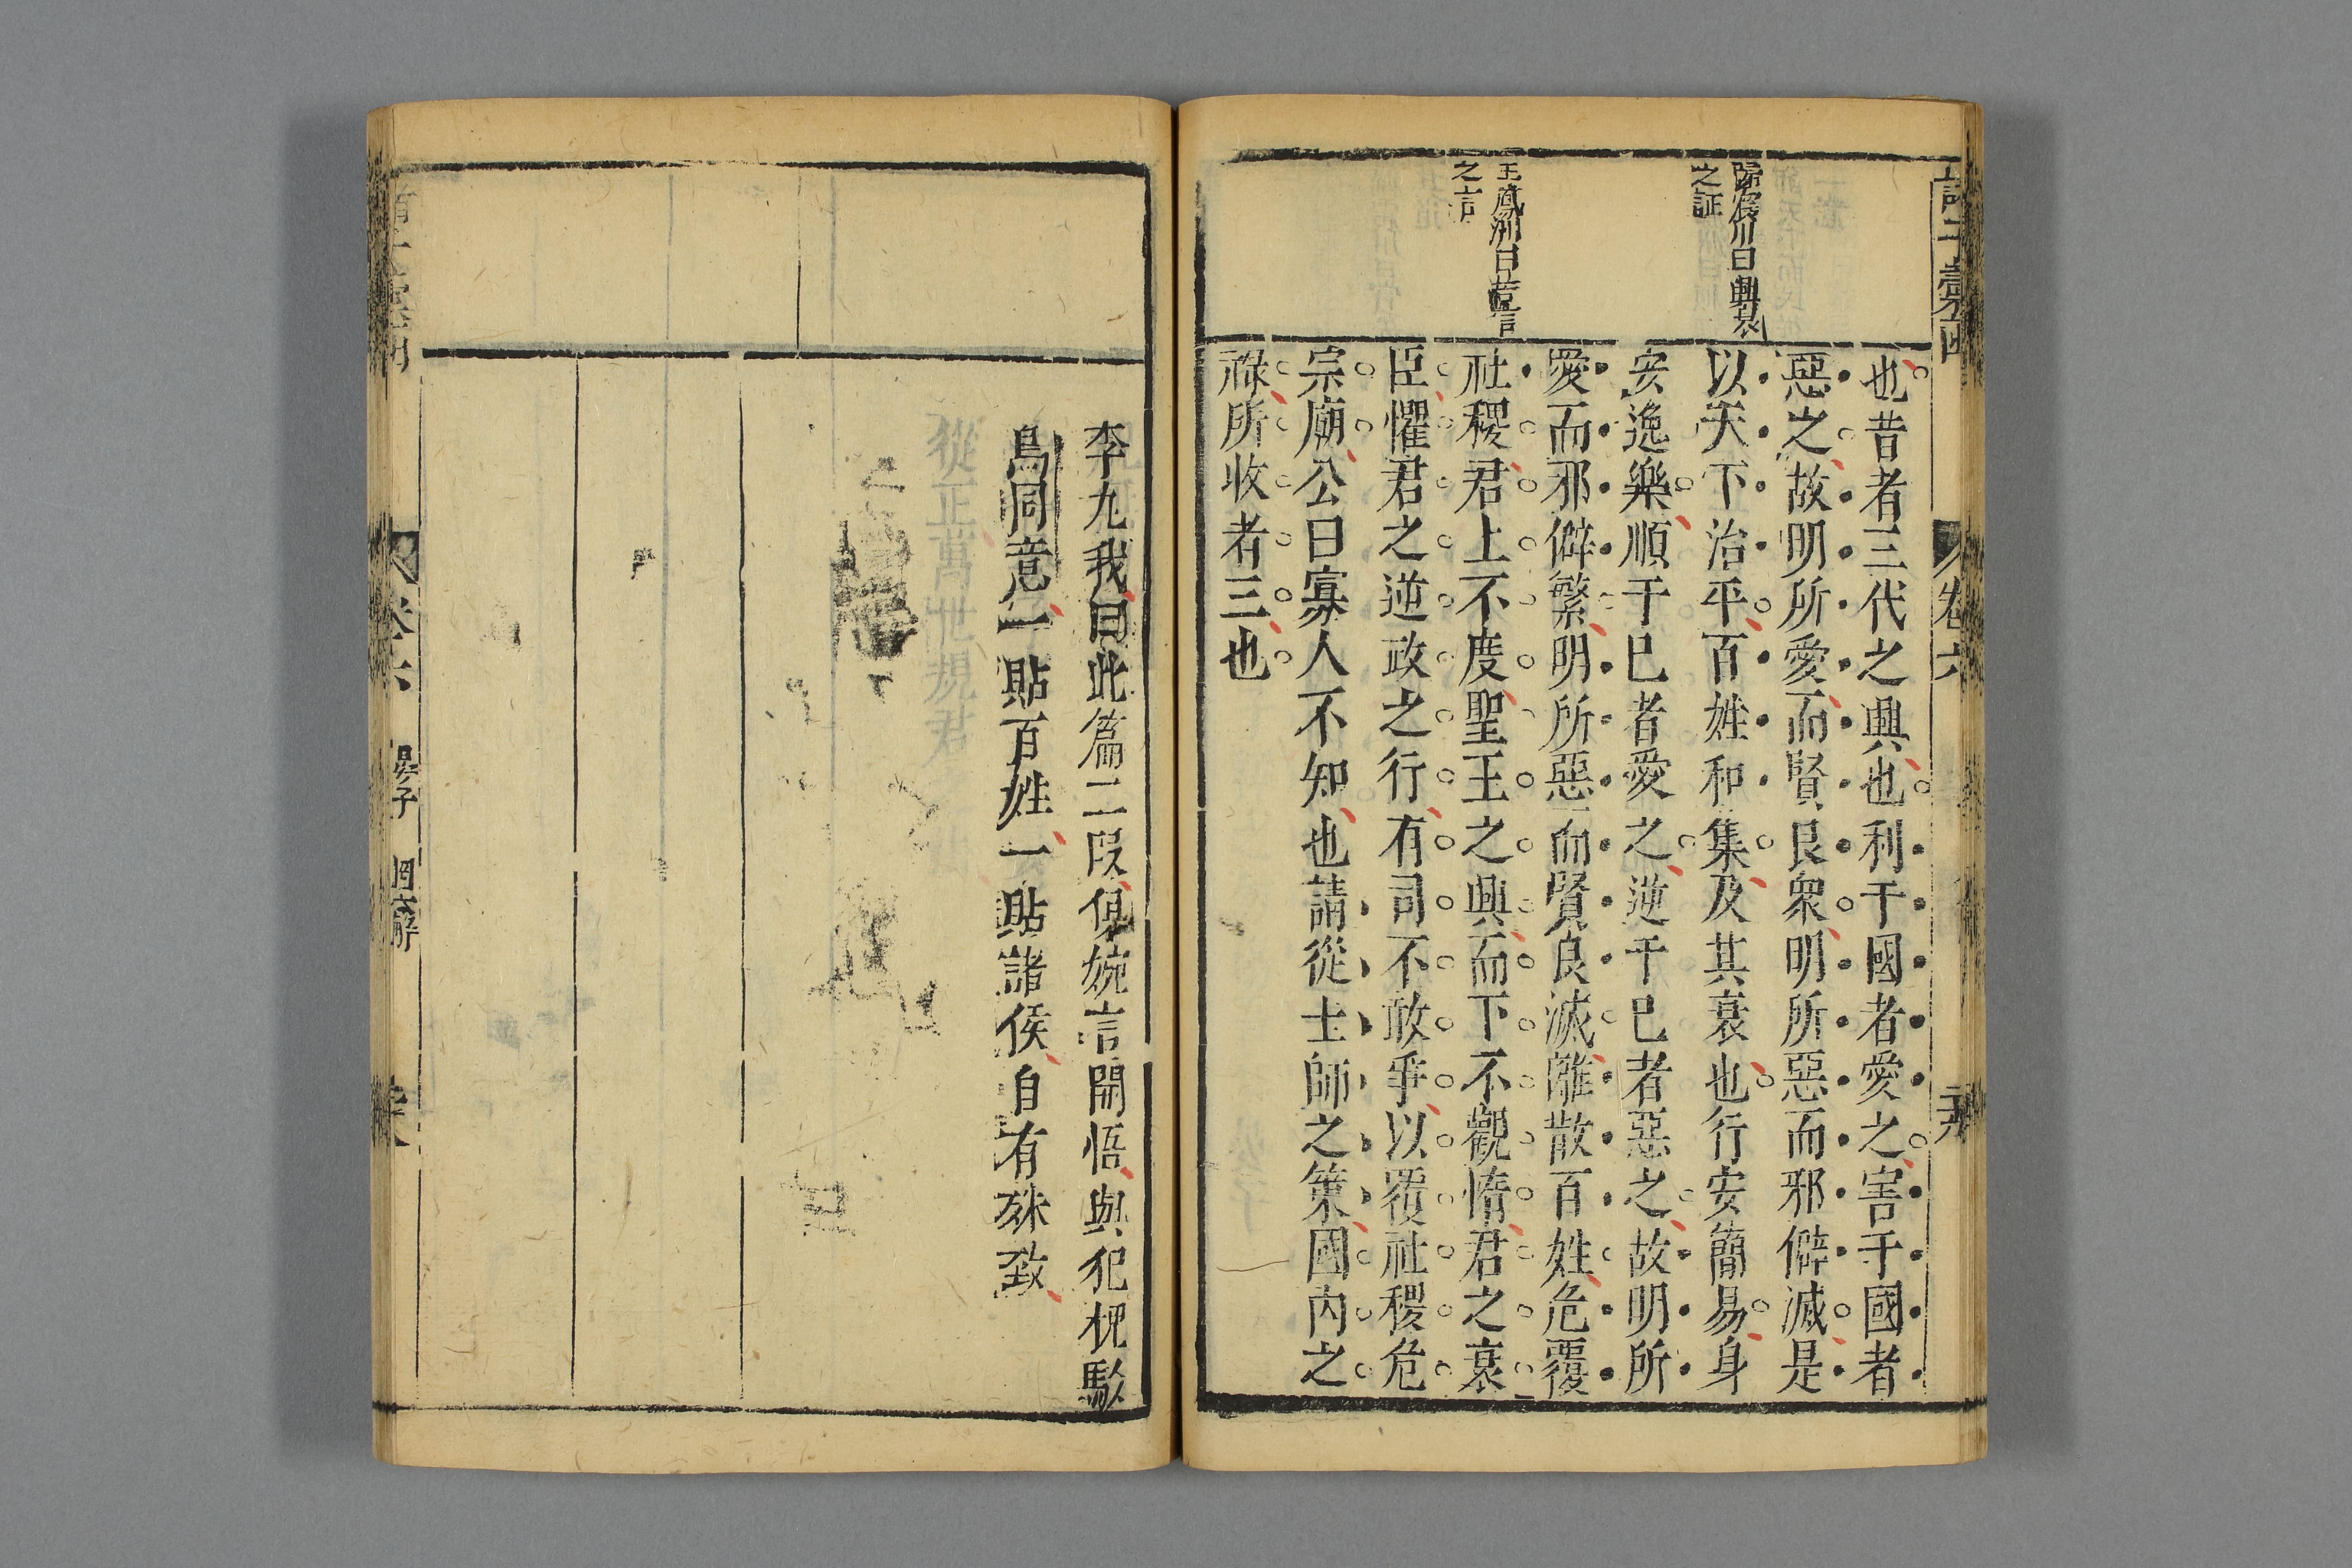 歸震川曰興衰
之証
王鳳洲曰苦言
之言
也昔者三代之興也利于國者愛之害于國者
惡之故明所愛而賢良衆明所惡而邪僻滅是
以天下治平百姓和集及其衰也行安簡易身
安逸樂順于已者愛之逆于已者惡之故明所
愛而邪僻繁明所惡而賢良滅離散百姓危覆
社稷君上不度聖王之興而下不觀惰君之衰
臣懼君之逆政之行有司不敢爭以覆社稷危
宗廟公曰寡人不知也請從士師之策國內之
祿所收者三也
卷六
李九我曰此篇二段俱婉言開悟與犯桃駭
鳥同意一貼百姓一貼諸侯自有殊致
卷六
晏子